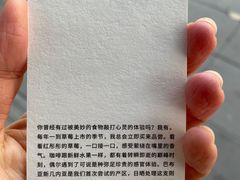 你曾经有过被美妙的食物敲打心灵的体验吗？我有。
每年一到草莓上市的季节，我总会立即买来品尝。看
着红彤彤的草莓，一口接一口，感受萦绕在嘴里的香
气。咖啡跟新鲜水果一样，都有着转瞬即逝的巅峰时
刻，偶尔遇到了可说是种弥足珍贵的感官体验。巴布
亚新几内亚是我们首次尝试的产区，日晒处理这支则